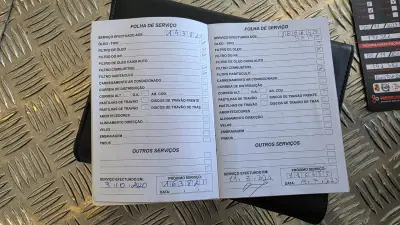 FOLHA DE SERVIÇO
SERVIÇO EFECTUADO AOS:
ÓLEO - TIPO
FILTRO DE ÓLEO
FILTRO DO AR
FILTRO DE ÓLEO CAIXA AUTO
FILTRO COMBUSTÍVEL
FILTRO HABITÁCULO
CARREGAMENTO AR CONDICIONADO
CORREIA DE DISTRIBUIÇÃO
CORREIA ALT. D.A. AR. COU.
PASTILHAS DE TRAVÃO DISCOS DE TRAVÃO FRENTE
PASTILHAS DE TRAVÃO DISCOS DE TRAVÃO TRÁS
AMORTECEDORES
ALINHAMENTO DIRECÇÃO
VELAS
EMBRAIAGEM
PNEUS
OUTROS SERVIÇOS
SERVIÇO EFECTUADO EM:
PRÓXIMO SERVIÇO:
163821
DATA:
FOLHA DE SERVIÇO
SERVIÇO EFECTUADO AOS:
ÓLEO - TIPO
FILTRO DE ÓLEO
FILTRO DO AR
FILTRO DE ÓLEO CAIXA AUTO
FILTRO COMBUSTÍVEL
FILTRO HABITÁCULO
CARREGAMENTO AR CONDICIONADO
CORREIA DE DISTRIBUIÇÃO
CORREIA ALT. D.A. AR. COU.
PASTILHAS DE TRAVÃO DISCOS DE TRAVÃO FRENTE
PASTILHAS DE TRAVÃO DISCOS DE TRAVÃO TRÁS
AMORTECEDORES
ALINHAMENTO DIRECÇÃO
VELAS
EMBRAIAGEM
PNEUS
OUTROS SERVIÇOS
SERVIÇO EFECTUADO EM:
PRÓXIMO SERVIÇO:
DATA: